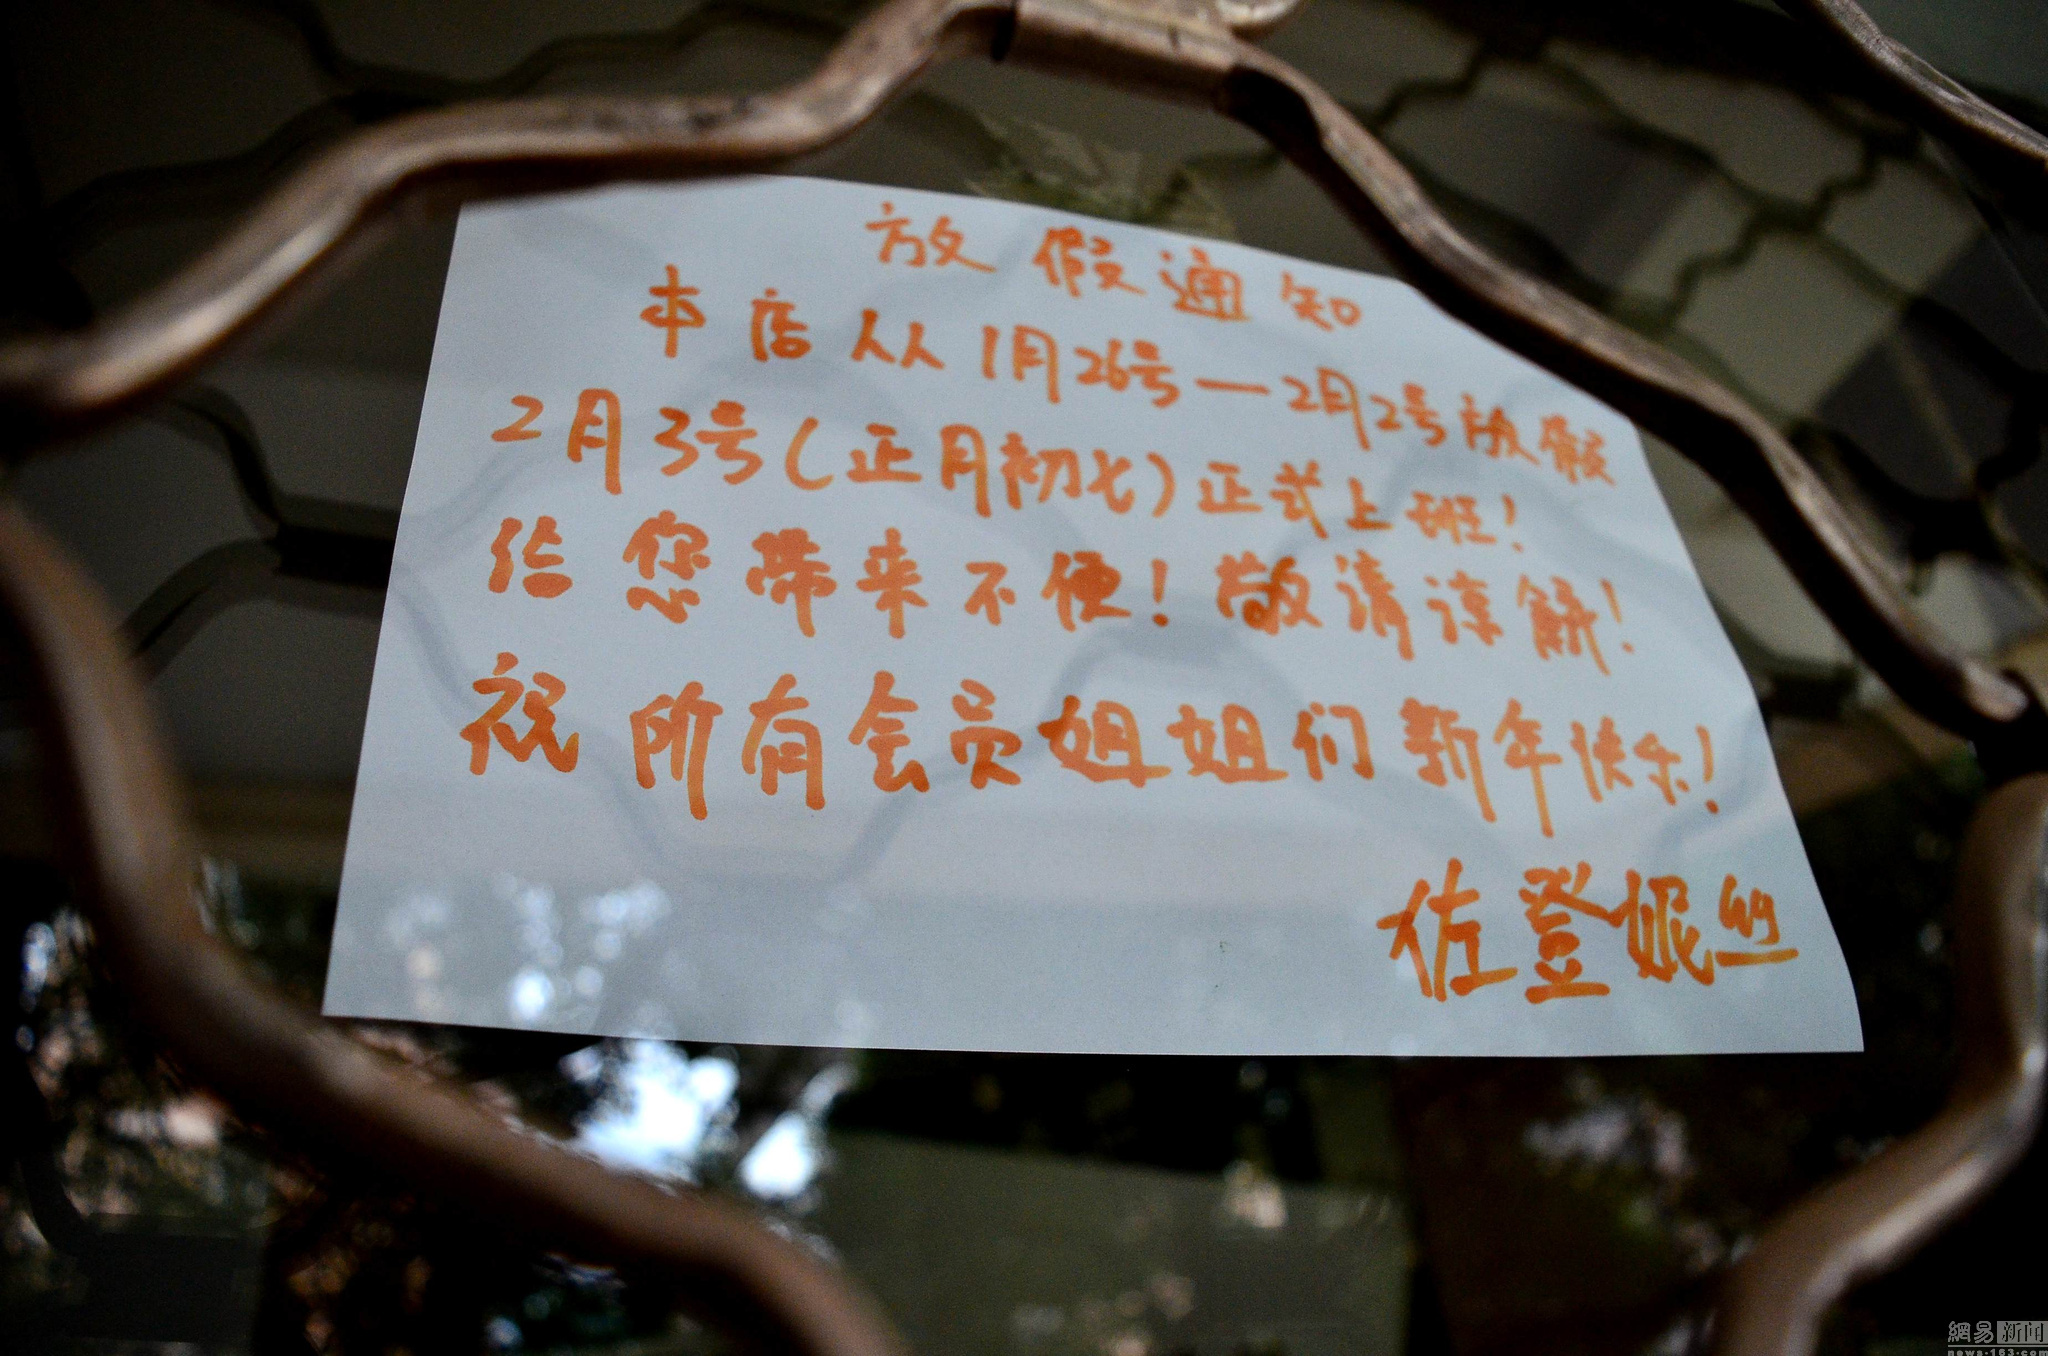 放假通知
本店从1月26号—2月2号放假
2月3号(正月初七)正式上班!
给您带来不便!敬请谅解!
祝所有会员姐姐们新年快乐!
佐登妮丝
網易新闻
news.163.com